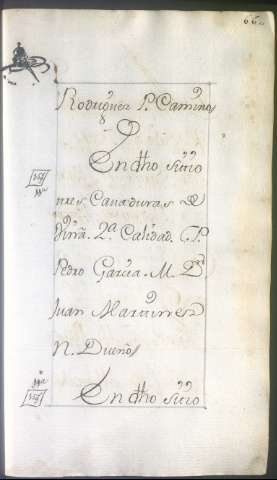 66
Rodrigues P. Caminos
En dho sitio
tres Cavaduras de
Viña. 2ª Calidad. L. P.
Pedro Garcia. M. Dn
Juan Martines
N. Dueños
En dho sitio